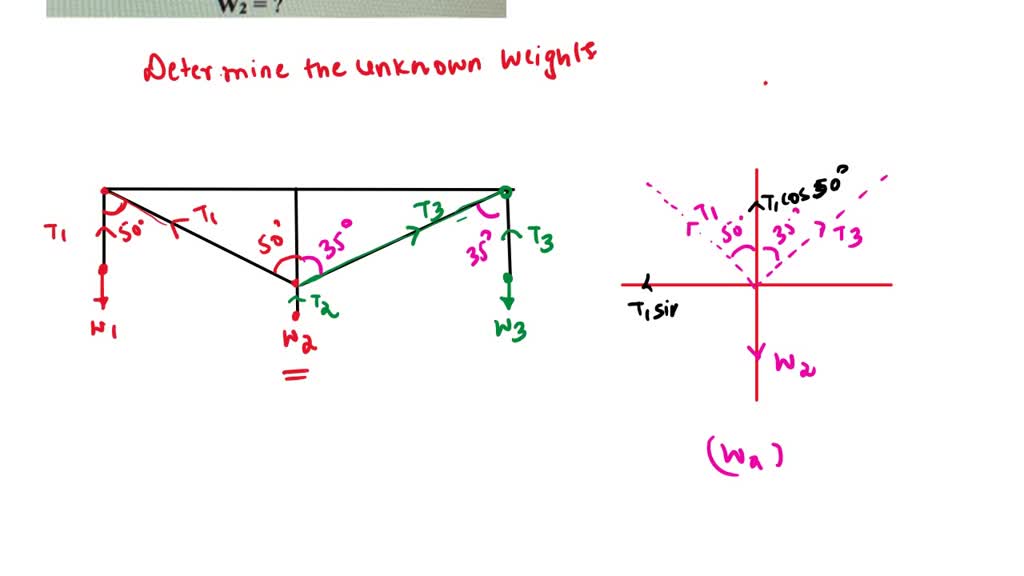 W₂ = ?
Determine the unknown weights
T1 50° T1 50° 35° T3 35° T3
T2
W1 W2 W3
T1 50° T1cos50° 35° T3
T1sin
W2
(W2)